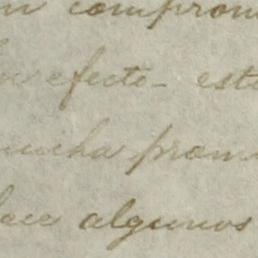 comprom
efecto - est
mucha prom
algunos